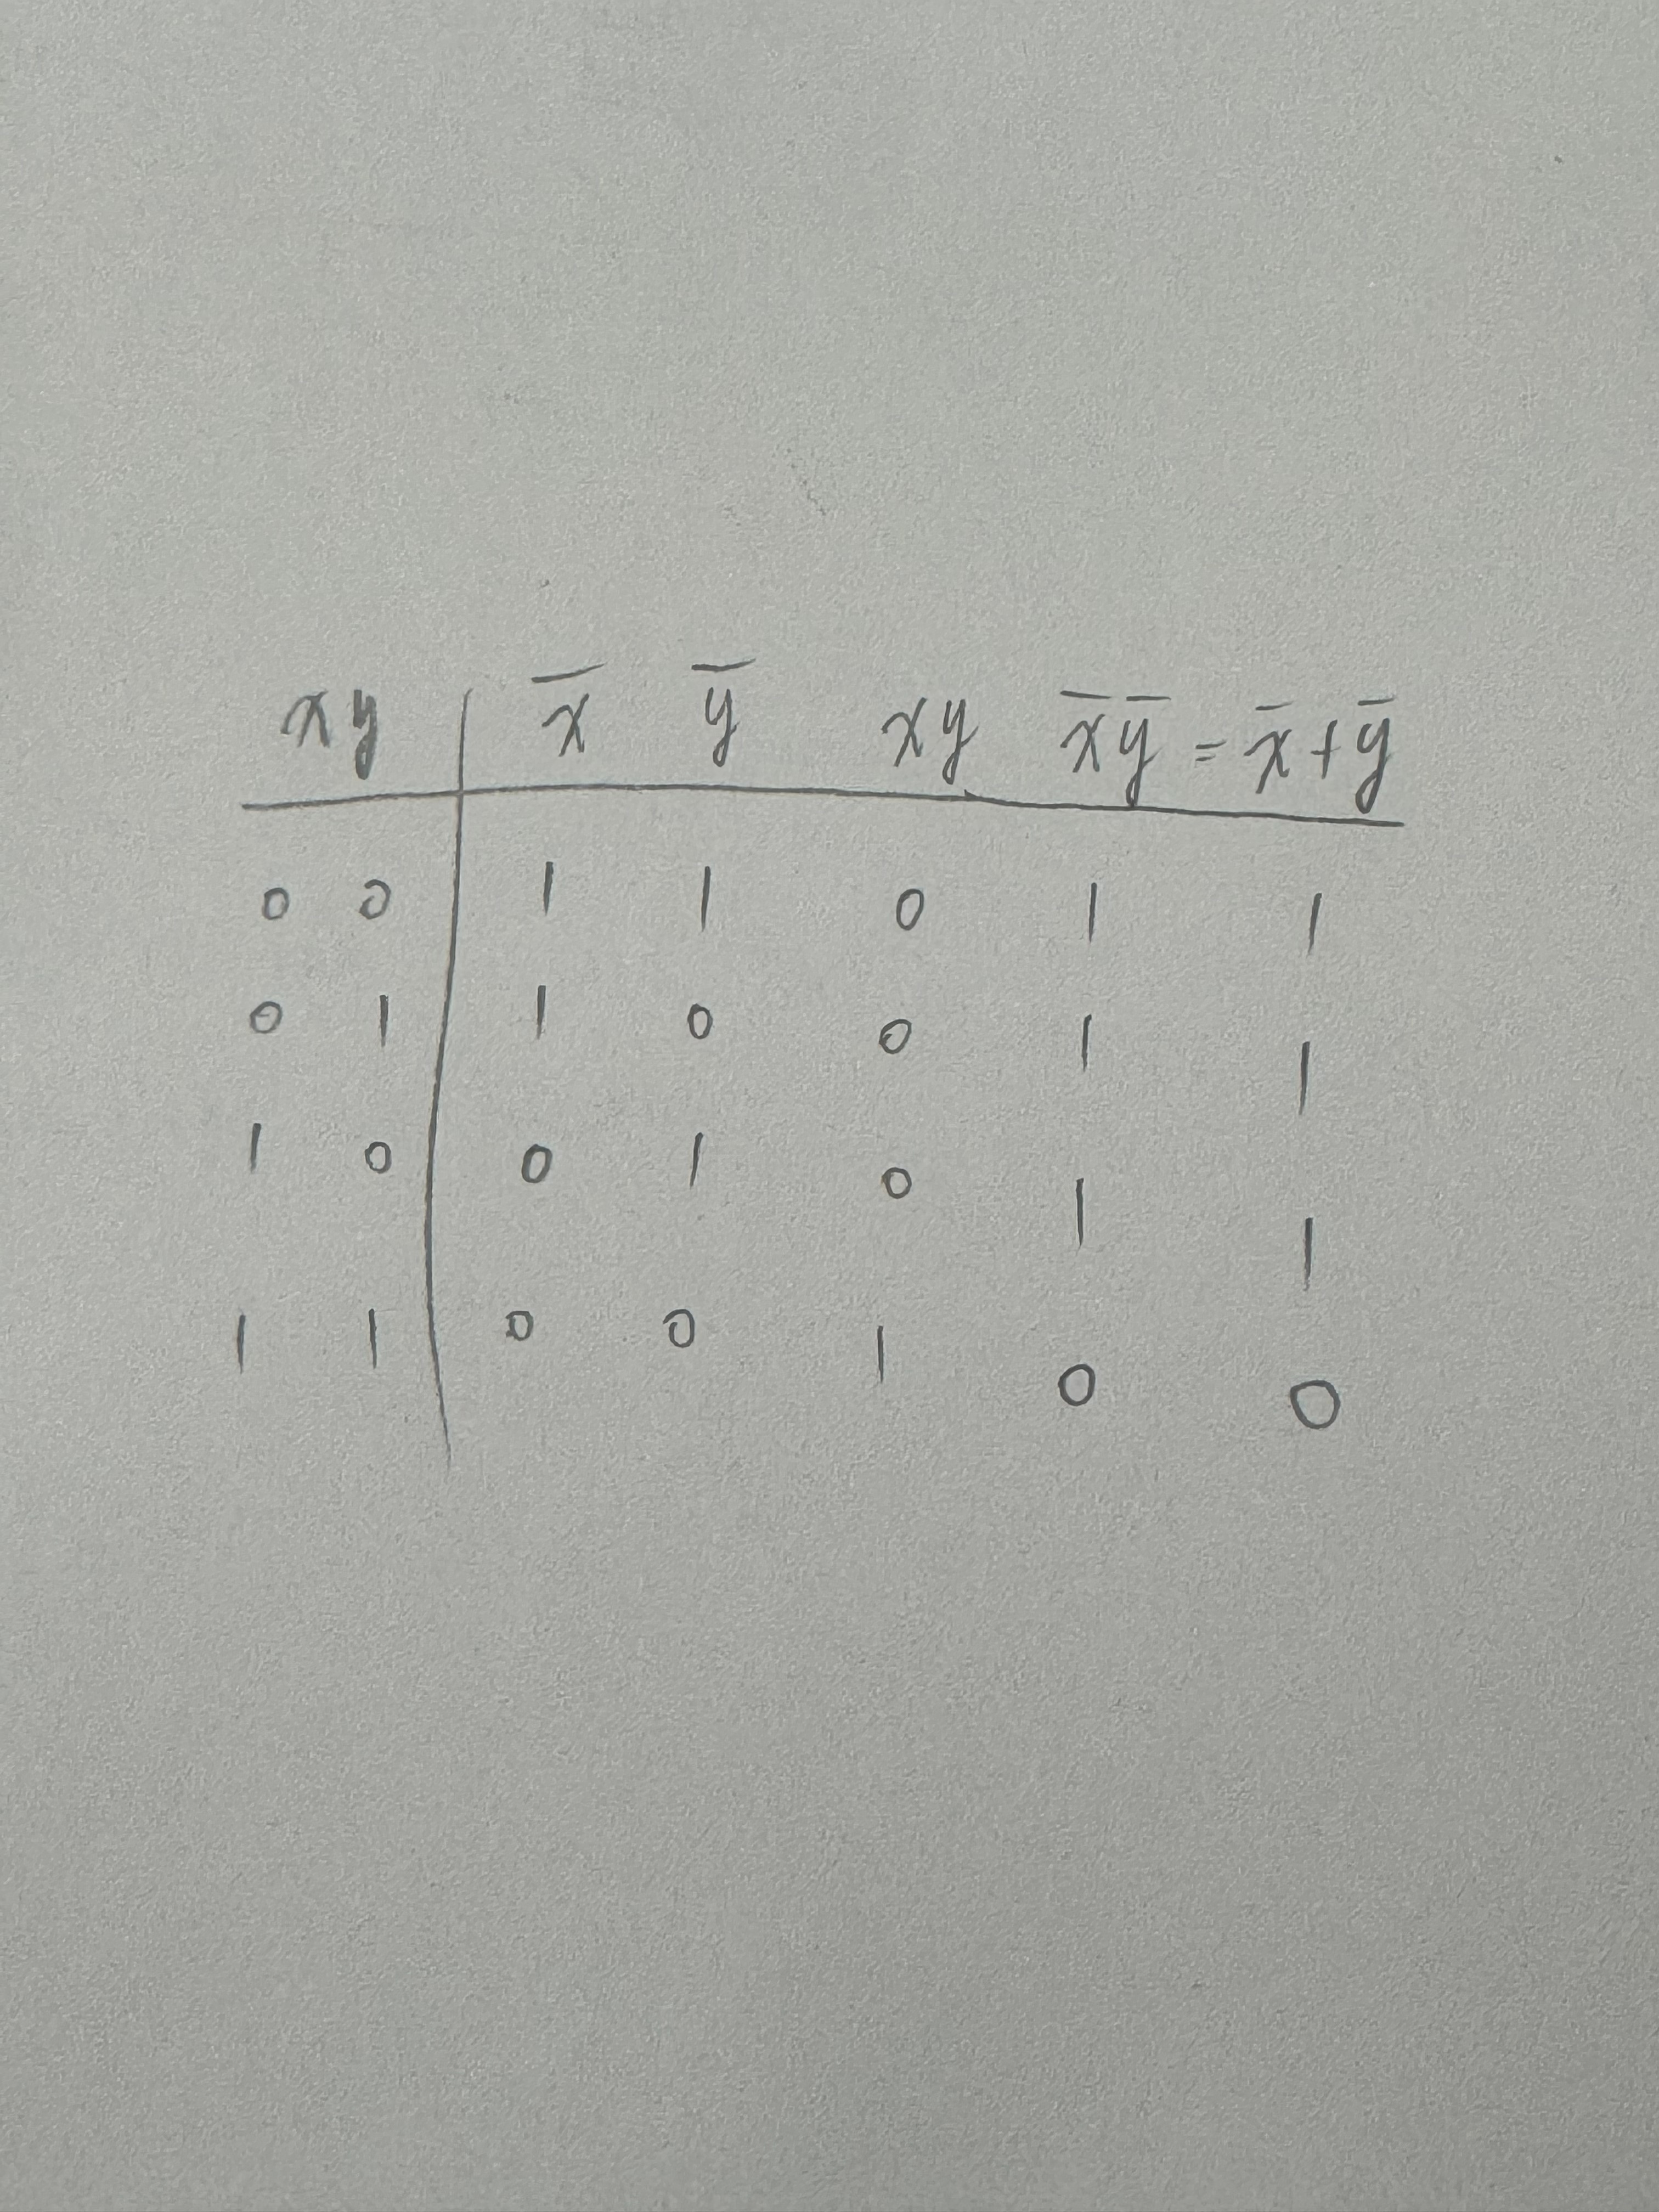 x y x̅ y̅ xy x̅ y̅ = x̅ + y̅
0 0 1 1 0 1 1
0 1 1 0 0 1 1
1 0 0 1 0 1 1
1 1 0 0 1 0 0